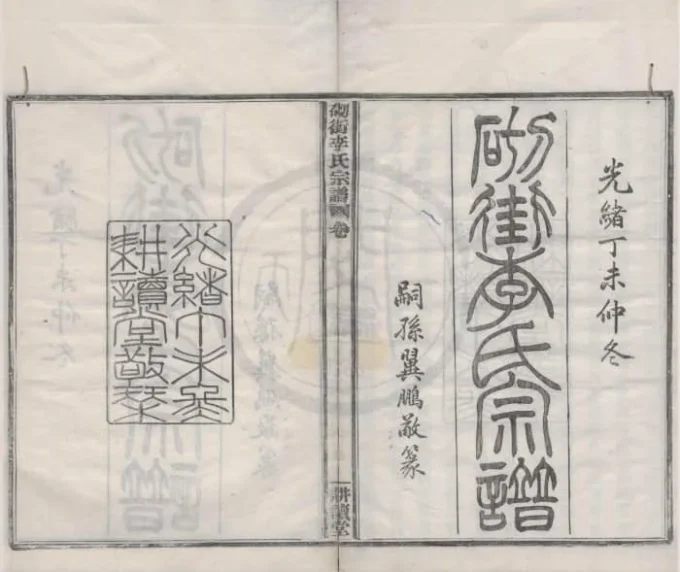 光緒丁未仲冬
砌街李氏宗譜
嗣孫翼鵬敬篆
砌街李氏宗譜
卷
耕讀堂
光緒丁未冬
耕讀堂敬栞